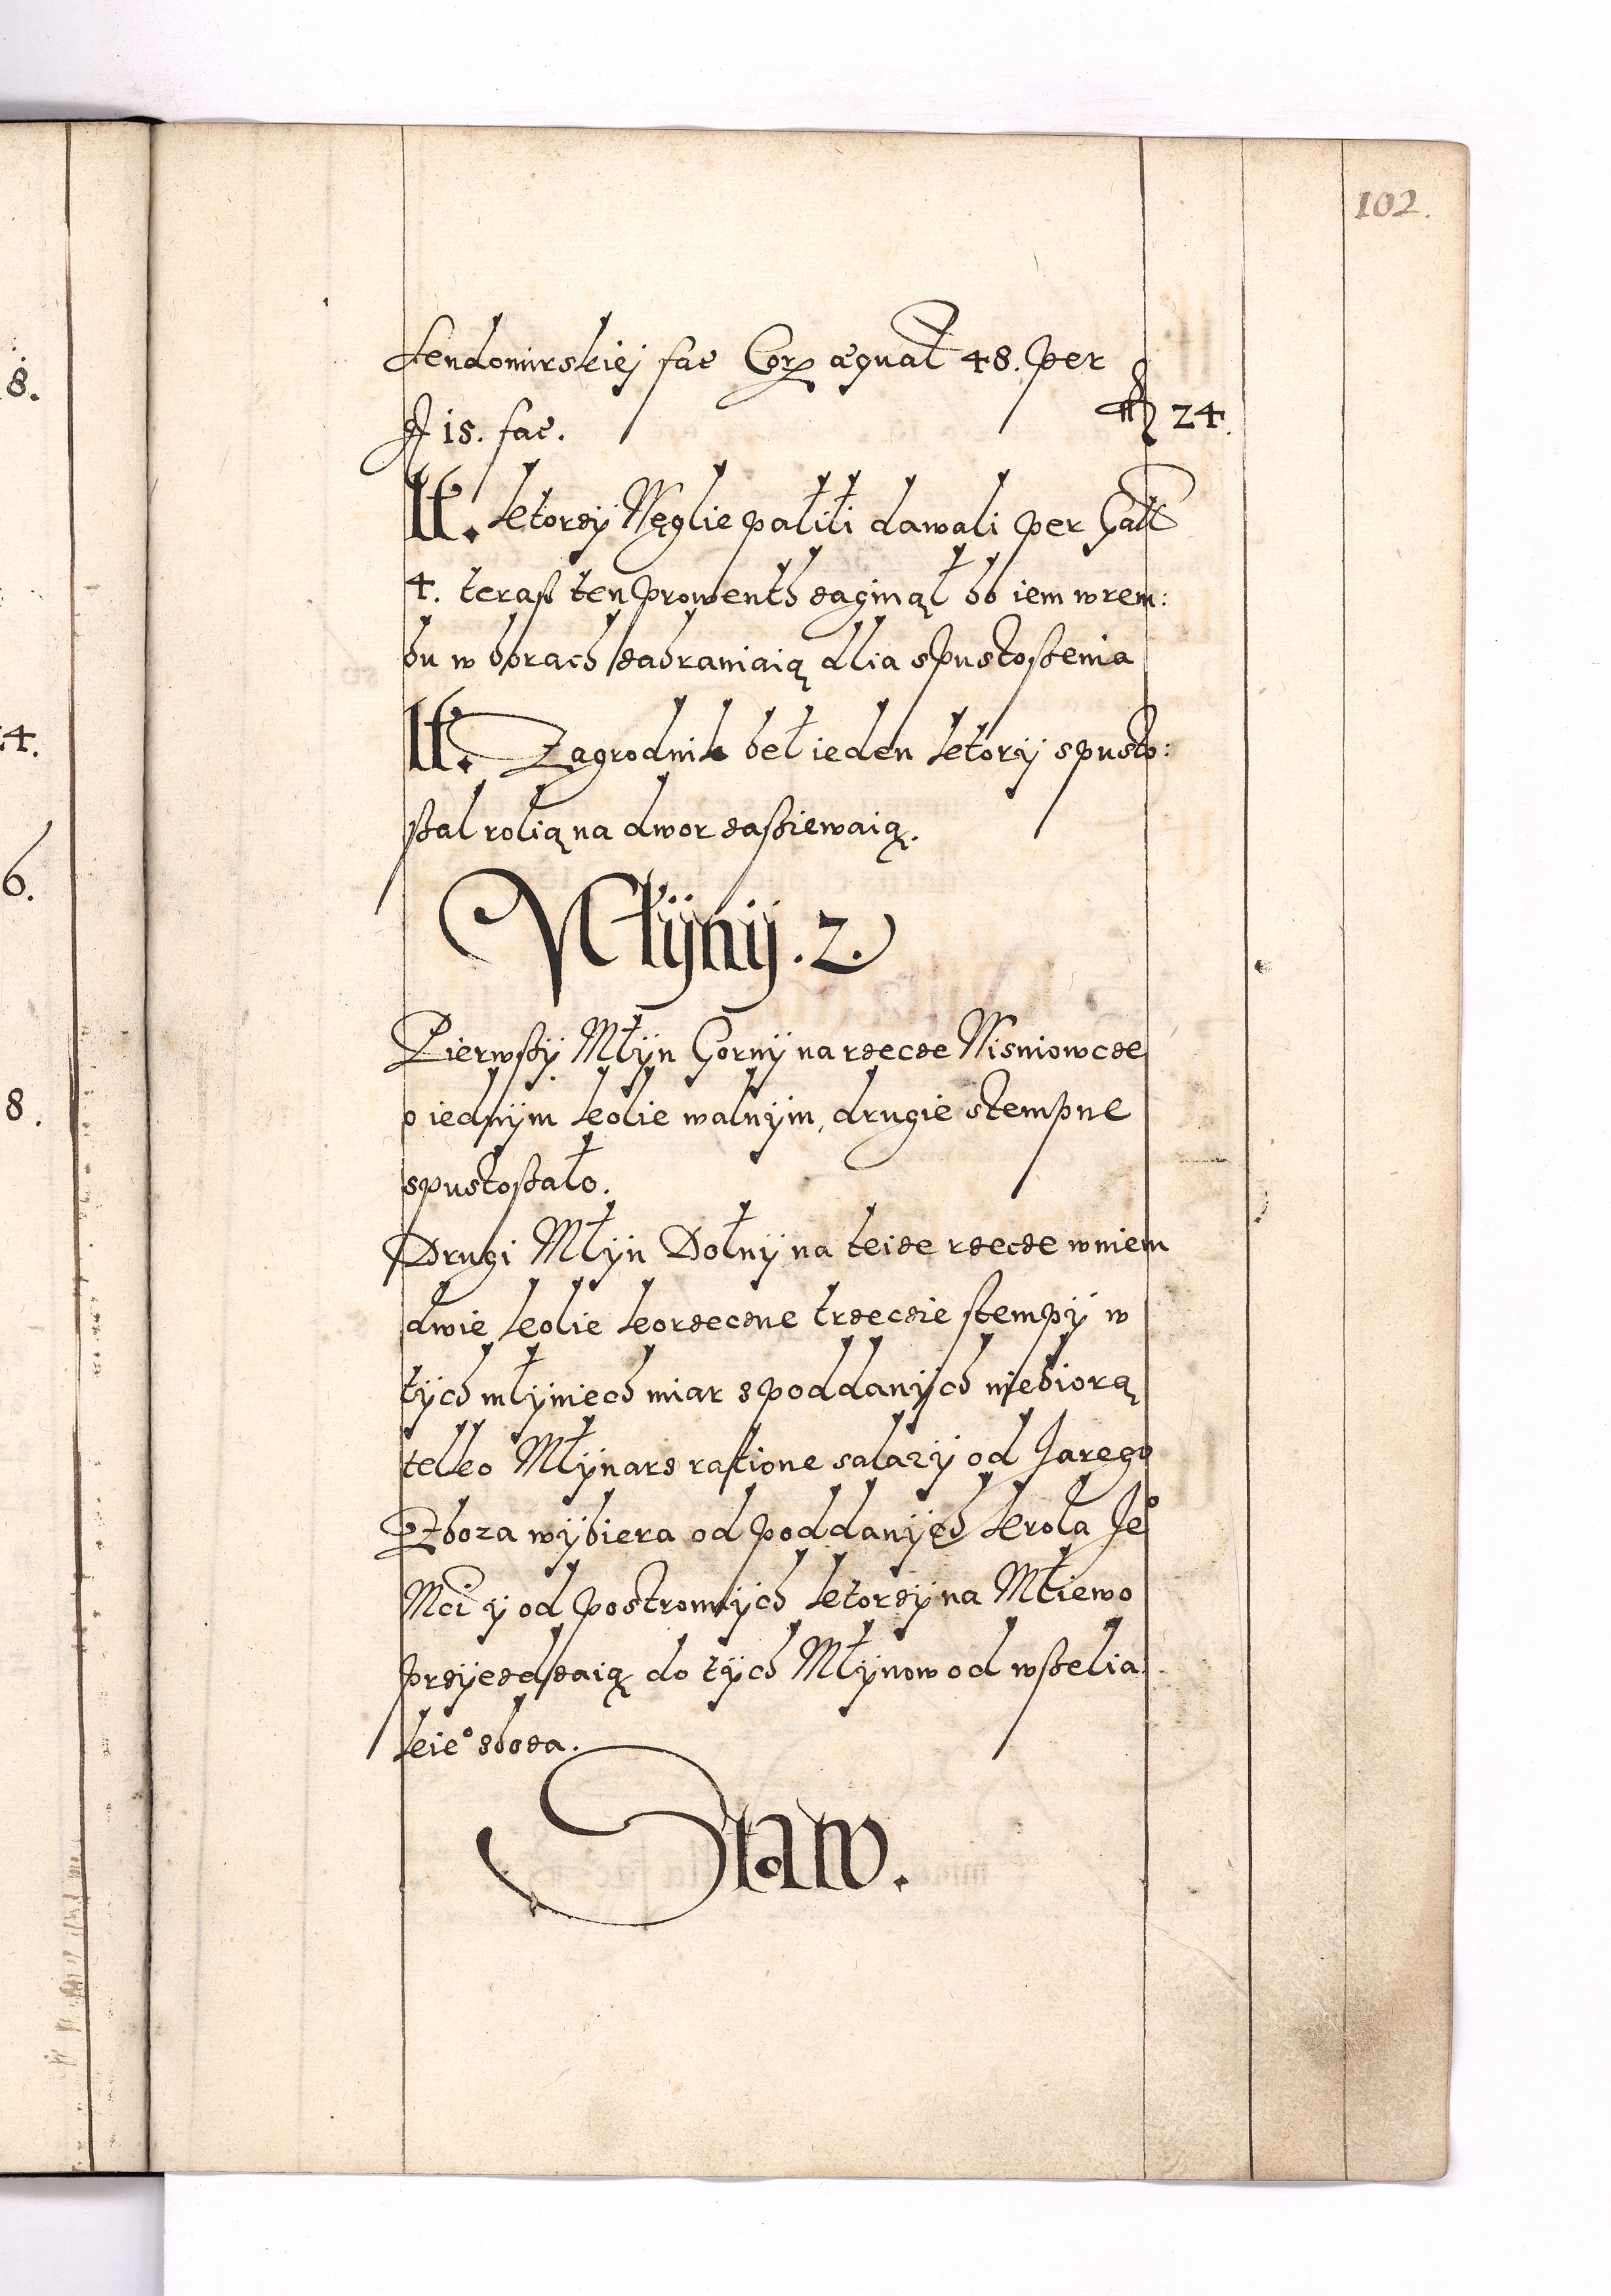 102.
Sendomirskiej fac Cor æqual 48. per
g 15. fac. 24.
It. ktorzÿ Węglie paliłi dawali per Gałł
4. terasz ten prowenth zaginął bo iem w rem:
bu w borach zabraniaią dlia spustoszenia
It. Zagrodnik beł ieden ktorÿ spusto:
szal rolią na dwor zasziewaią.
Młÿnÿ. 2.
Pierwszÿ Młÿn Gornÿ na rzecze Wisniowcze
o iednÿm kolie walnÿm, drugie stempne
spustoszało.
Drugi Młÿn Dołnÿ na teize rzecze w niem
dwie kolie korzeczne trzeczie stempÿ w
tÿch młÿniech miar s poddanÿch niebiorą
telko Młÿnarz ratione salarÿ od Jarego
Zboza wÿbiera od poddanÿch krola Je°
Mci ÿ od postronnÿch ktorzÿ na Młiewo
przÿezdzaią do tÿch Młÿnow od wszelia:
kie° zboza.
Staw.
8.
4.
6.
8.